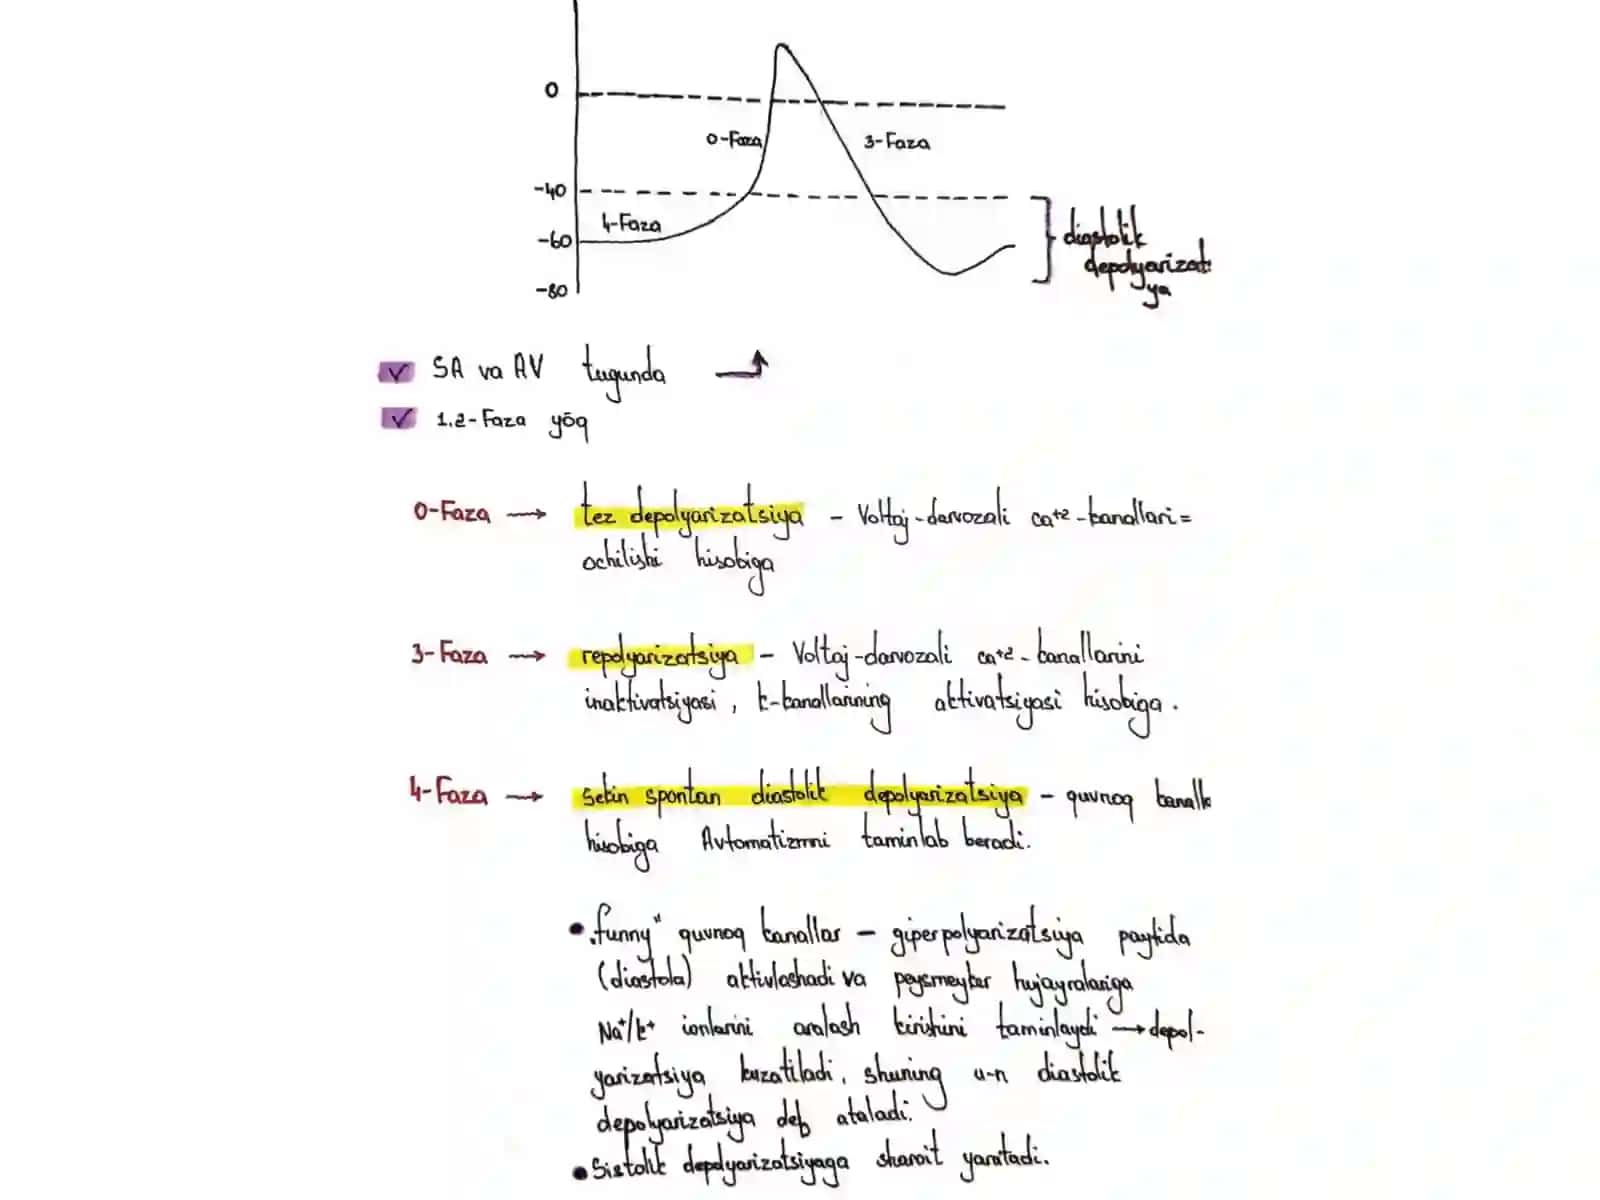 0
0-Faza
3-Faza
-40
4-Faza
-60
diastolik
depolyarizat
ya
-80
SA va AV tugunda
1.2-Faza yōq
0-Faza → tez depolyarizatsiya - Voltaj-darvozali ca+2-kanallari=
ochilishi hisobiga
3-Faza → repolyarizatsiya - Voltaj-darvozali ca+2-kanallarini
inaktivatsiyasi, k-kanallarining aktivatsiyasi hisobiga.
4-Faza → Sekin spontan diastolik depolyarizatsiya - quvnoq kanall
hisobiga Avtomatizmni taminlab beradi.
• „funny" quvnoq kanallar - giperpolyarizatsiya paytida
(diastola) aktivlashadi va peysmeyker hujayralariga
Na+/k+ ionlarini aralash kirishini taminlaydi → depol-
yarizatsiya kuzatiladi, shuning u-n diastolik
depolyarizatsiya deb ataladi.
• Sistolik depolyarizatsiyaga sharoit yaratadi.